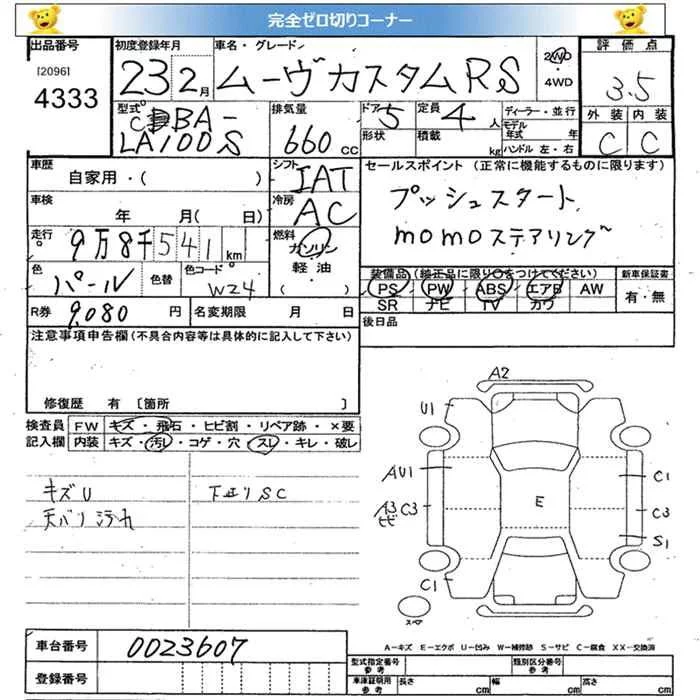 完全ゼロ切りコーナー
出品番号 初度登録年月 車名・グレード 2WD 4WD 評価点
[2096] 4333 23年2月 ムーヴカスタムRS 3.5
型式 CBA-LA100S 排気量 660cc ドア 5 定員 4人 ディーラー・並行 外装 内装
形状 積載 kg モデル年式 年 ハンドル 左・右 C C
車歴 自家用・( ) シフト IAT セールスポイント (正常に機能するものに限ります)
車検 年 月( 日) 冷房 AC プッシュスタート
走行 9万8千541km 燃料 ガソリン 軽油 ( ) momoステアリング
色 パール 色替 色コード W24 装備品 (純正品に限り○をつけてください) 新車保証書
PS PW ABS エアB AW 有・無
SR ナビ TV カワ
R券 9,080円 名変期限 月 日 後日品
注意事項申告欄 (不具合内容等は具体的に記入して下さい)
修復歴 有 [箇所 ]
検査員 FW キズ・飛石・ヒビ割・リペア跡・×要
記入欄 内装 キズ・汚レ・コゲ・穴・スレ・キレ・破レ
キズU 下廻りSC
天バリ汚れ
A2
U1
AU1 C1
A3 ヒビ C3 E C3
S1
C1
スペア
A−キズ E−エクボ U−凹み W−補修跡 S−サビ C−腐食 XX−交換済
車台番号 0023607
登録番号
型式指定番号 参考 類別区分番号 参考
車庫証明用 参考 長さ cm 幅 cm 高さ cm